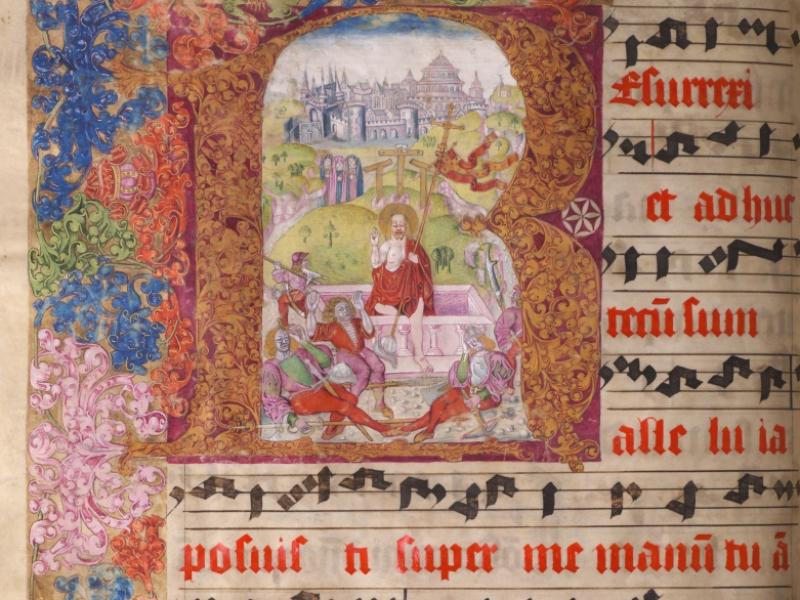 REsurrexi
et ad huc
tecū sum
alle lu ia
posuis ti super me manū tu ā